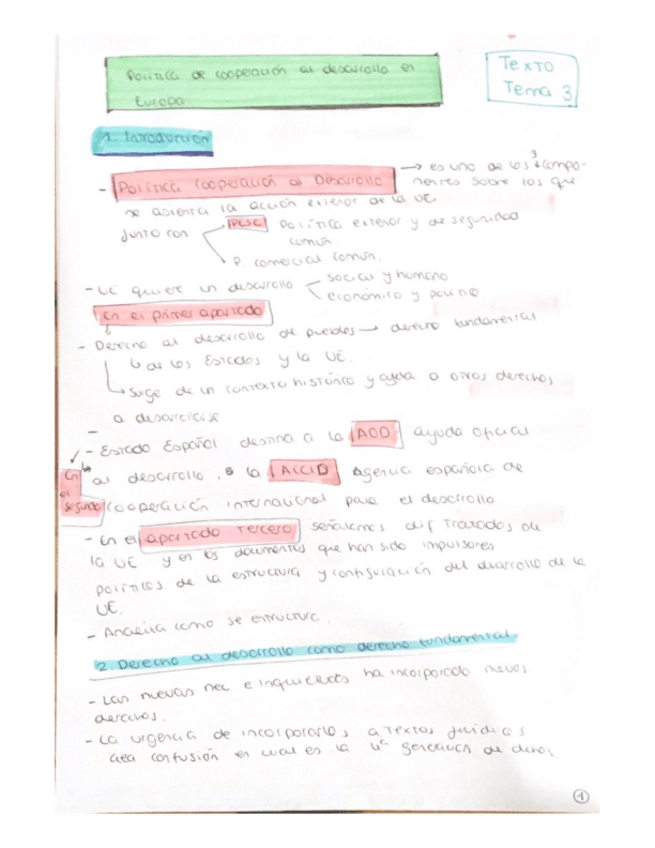 Política de cooperación al desarrollo en
Europa
Texto
Tema 3
1. Introducción
- Política Cooperación al Desarrollo → es uno de los 3 compo-
nentes sobre los que
se asienta la acción exterior de la UE
junto con
PESC Política exterior y de seguridad
común.
P. comercial común.
- UE quiere un desarrollo
social y humano
económico y político
En el primer apartado
- Derecho al desarrollo de pueblos → derecho fundamental
↳ de los Estados y la UE.
↳ Surge de un contexto histórico y ayuda a otros derechos
a desarrollarse
-
- Estado Español destina a la AOD ayuda oficial
En el segundo
al desarrollo, a la AECID Agencia española de
cooperación internacional para el desarrollo
- En el apartado tercero señalamos dif tratados de
la UE y en los documentos que han sido impulsores
políticos de la estructura y configuración del desarrollo de la
UE.
- Analiza como se estructura.
2. Derecho al desarrollo como derecho fundamental
- Las nuevas nec e inquietudes ha incorporado nuevos
derechos.
- La urgencia de incorporarlos a textos jurídicos
crea confusión en cual es la 4ª generación de
1